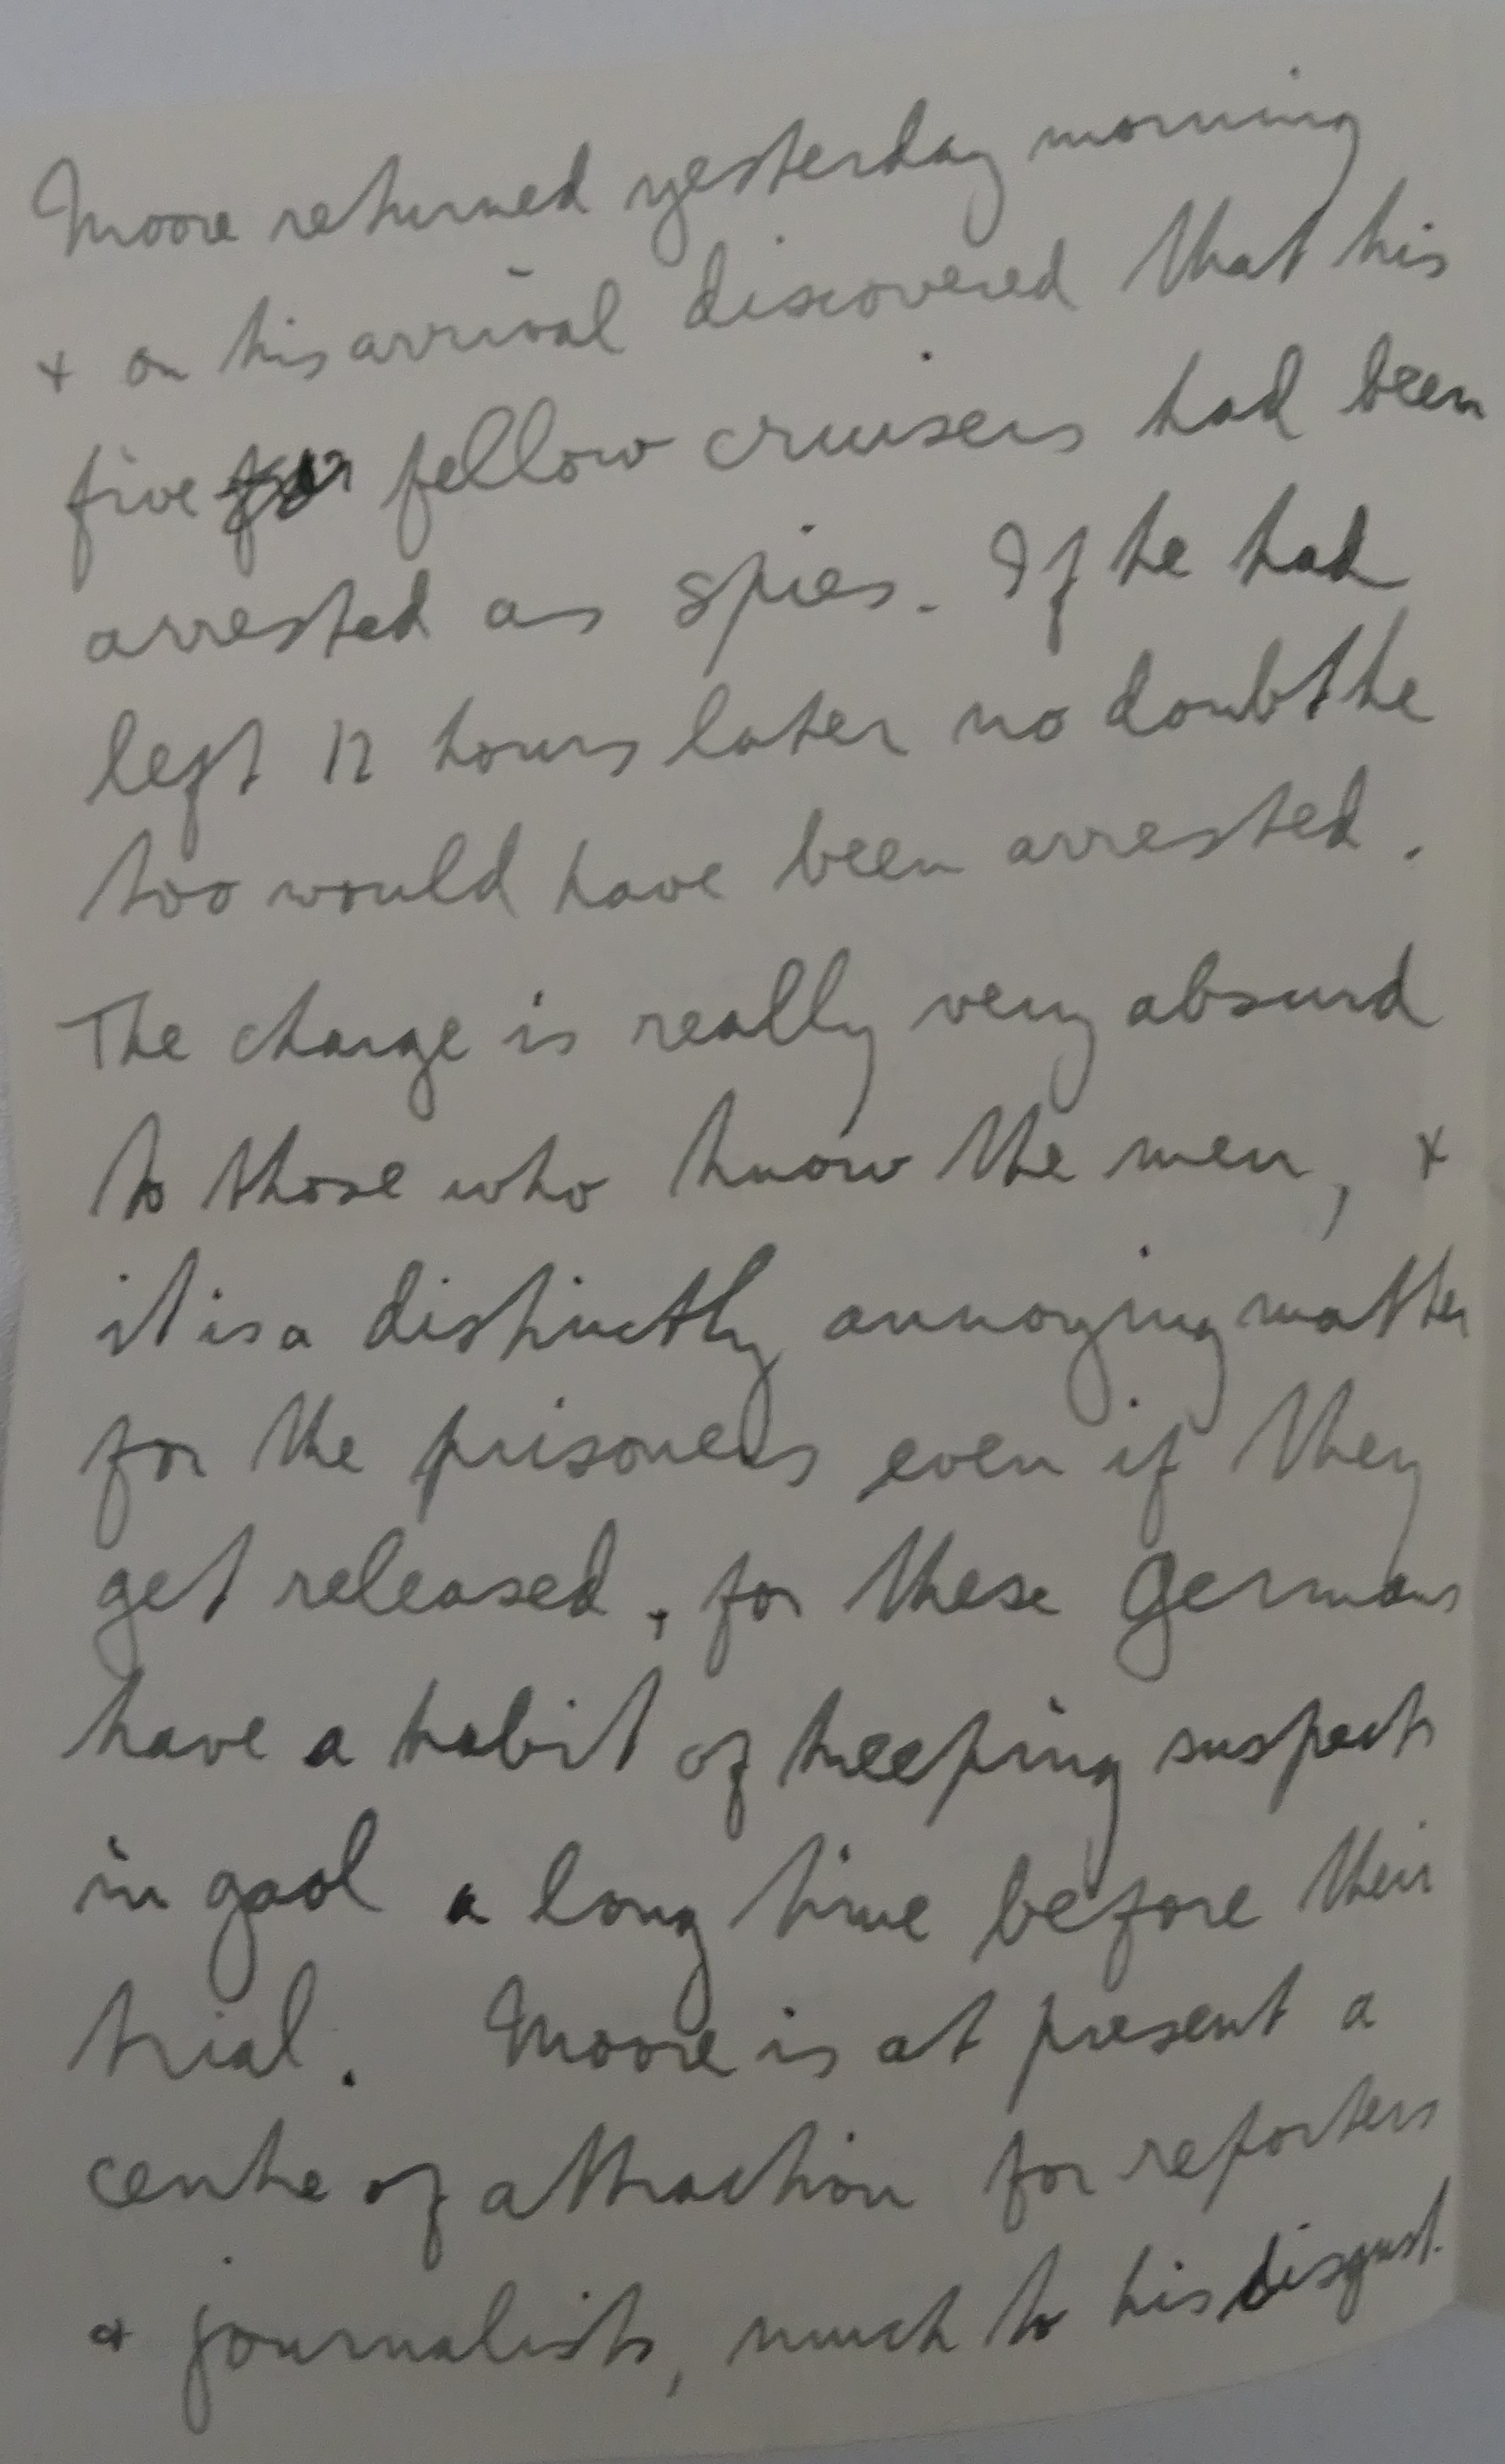 Moore returned yesterday morning
& on his arrival discovered that his
five fellow cruisers had been
arrested as spies. If he had
left 12 hours later no doubt he
too would have been arrested.
The charge is really very absurd
to those who know the men, &
it is a distinctly annoying matter
for the prisoners even if they
get released, for these Germans
have a habit of keeping suspects
in gaol a long time before their
trial. Moore is at present a
centre of attraction for reporters
& journalists, much to his disgust.